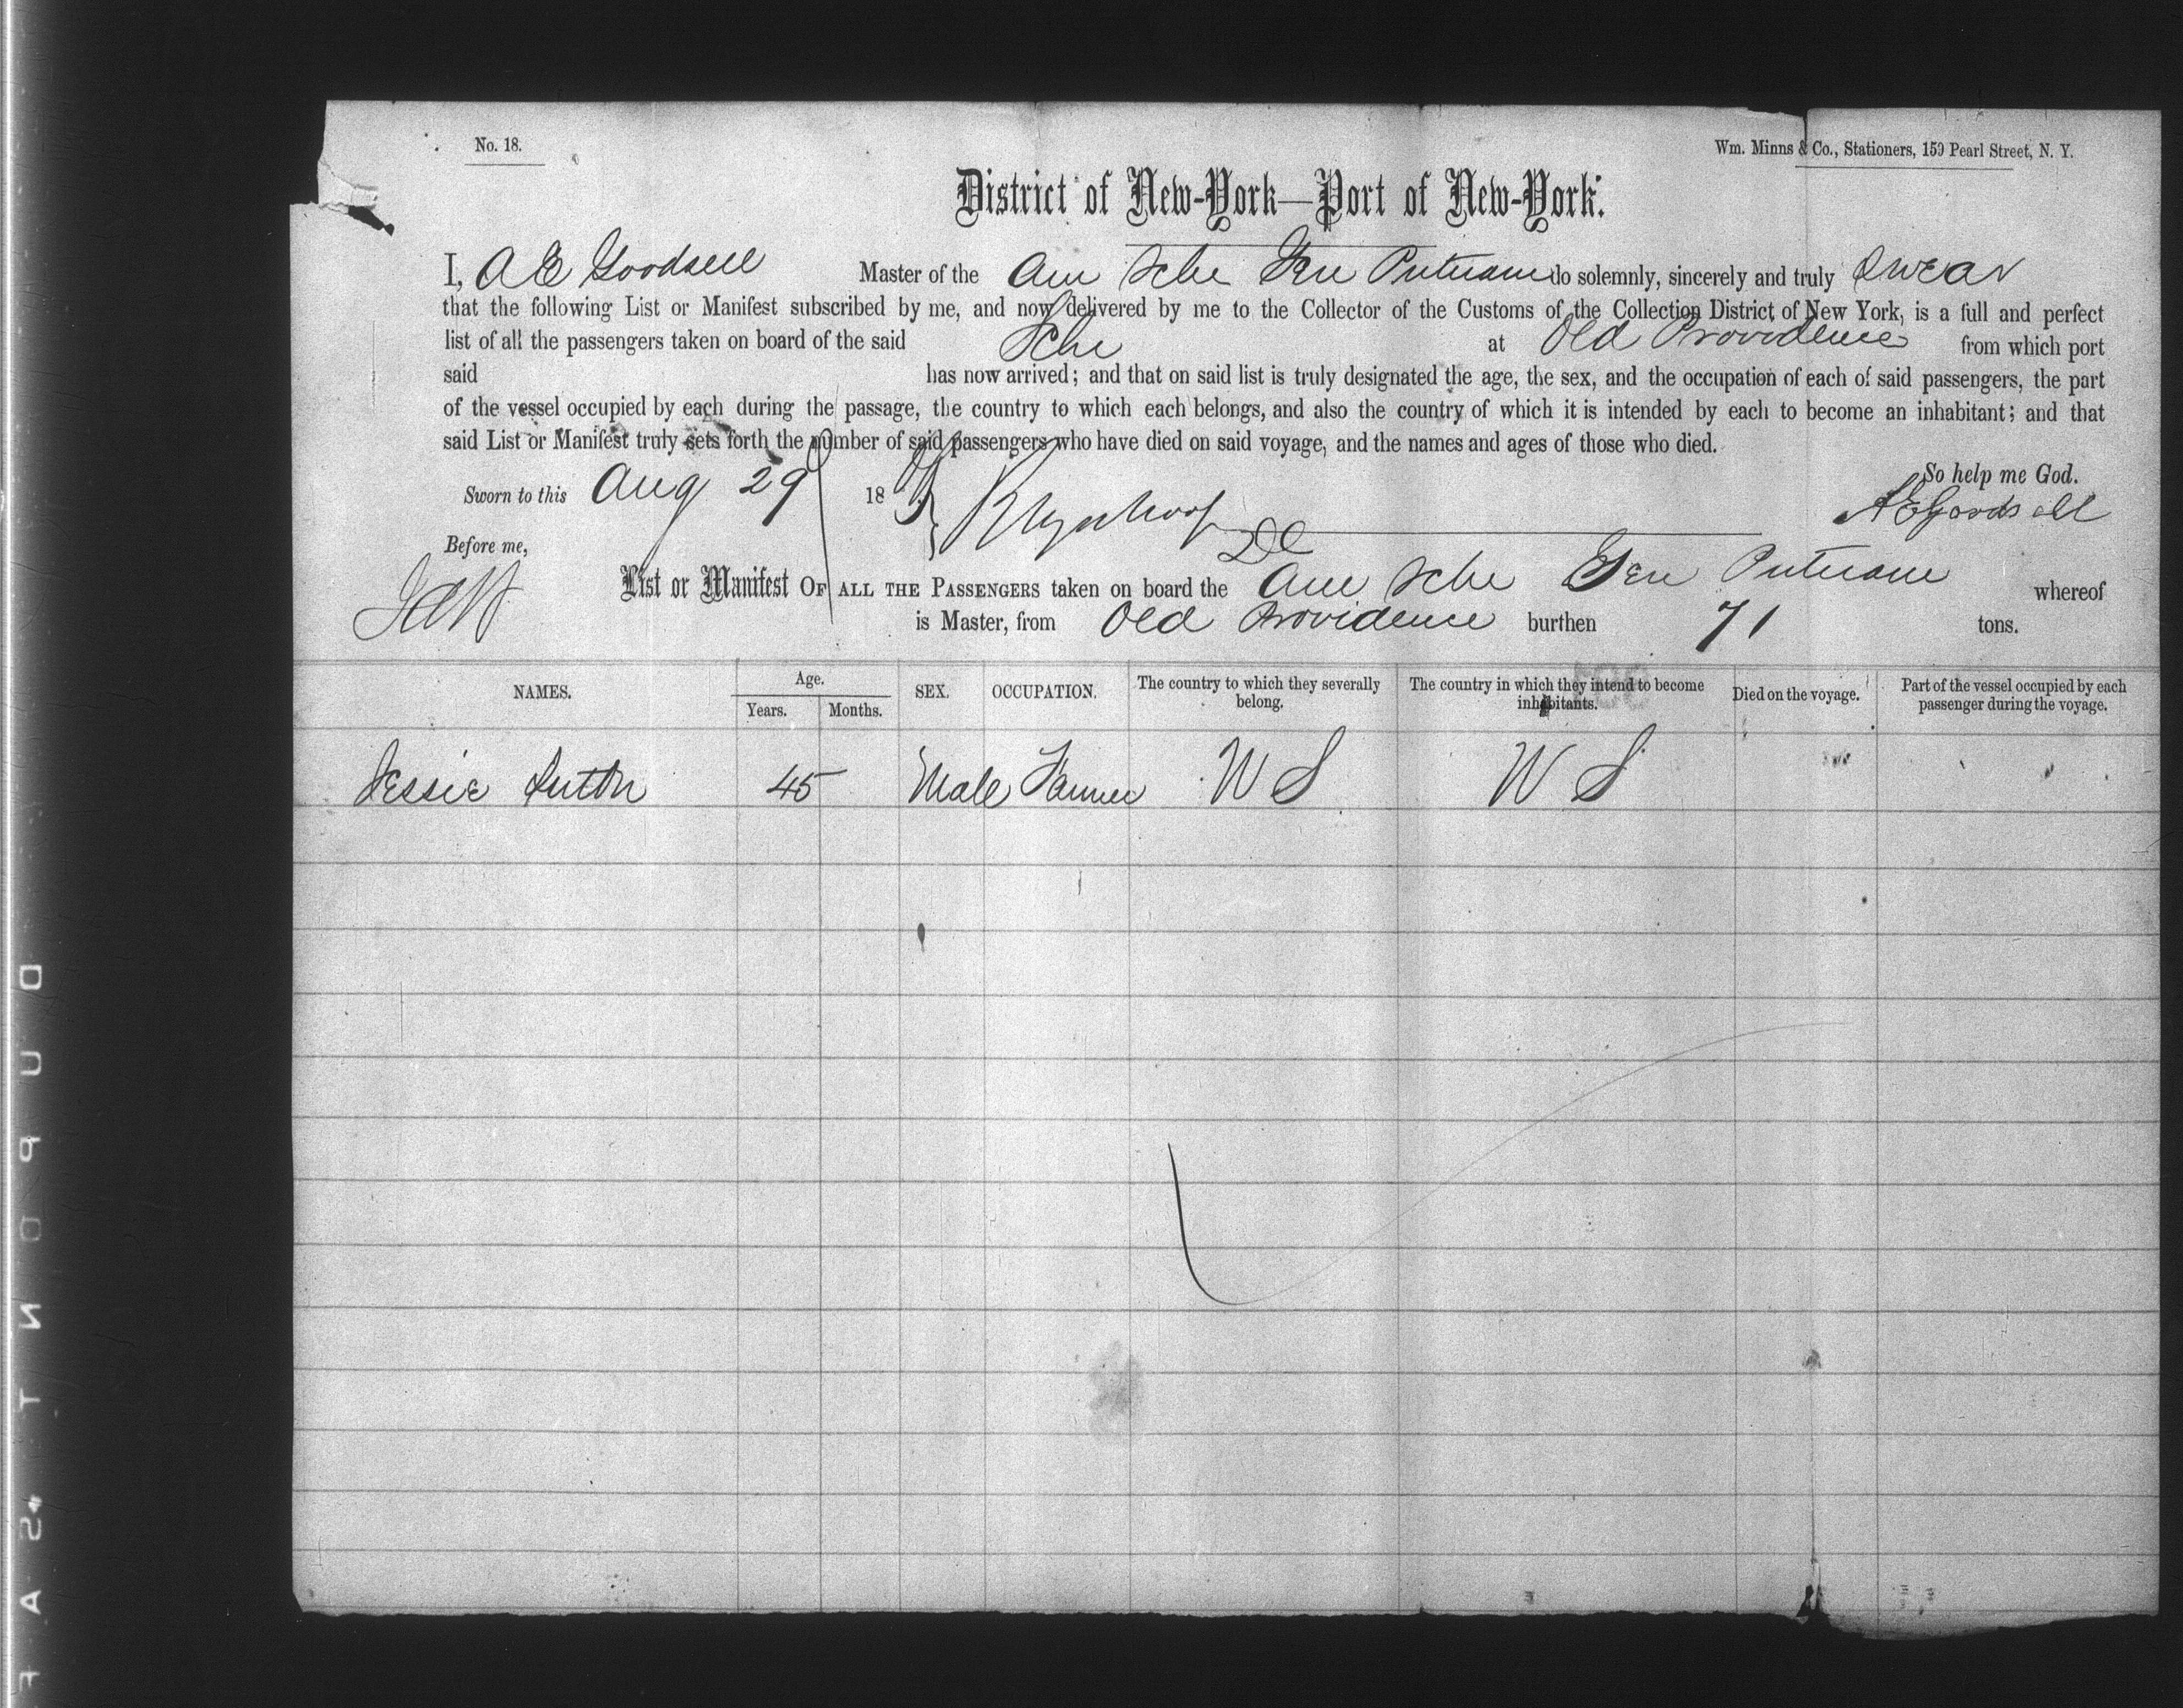 No. 18.
Wm. Minns & Co., Stationers, 159 Pearl Street, N. Y.
District of New-York—Port of New-York.
I, A E Goodsell Master of the Am Schr Gen Putnam do solemnly, sincerely and truly swear
that the following List or Manifest subscribed by me, and now delivered by me to the Collector of the Customs of the Collection District of New York, is a full and perfect
list of all the passengers taken on board of the said Schr at Old Providence from which port
said has now arrived; and that on said list is truly designated the age, the sex, and the occupation of each of said passengers, the part
of the vessel occupied by each during the passage, the country to which each belongs, and also the country of which it is intended by each to become an inhabitant; and that
said List or Manifest truly sets forth the number of said passengers who have died on said voyage, and the names and ages of those who died.
So help me God.
Sworn to this Aug 29 18
A E Goodsell
Before me,
List or Manifest OF ALL THE PASSENGERS taken on board the Am Schr Gen Putnam whereof
is Master, from Old Providence burthen 71 tons.
NAMES. Age. Years. Months. SEX. OCCUPATION. The country to which they severally belong. The country in which they intend to become inhabitants. Died on the voyage. Part of the vessel occupied by each passenger during the voyage.
Jessie 45 Male Farmer
DUPONT
SAF